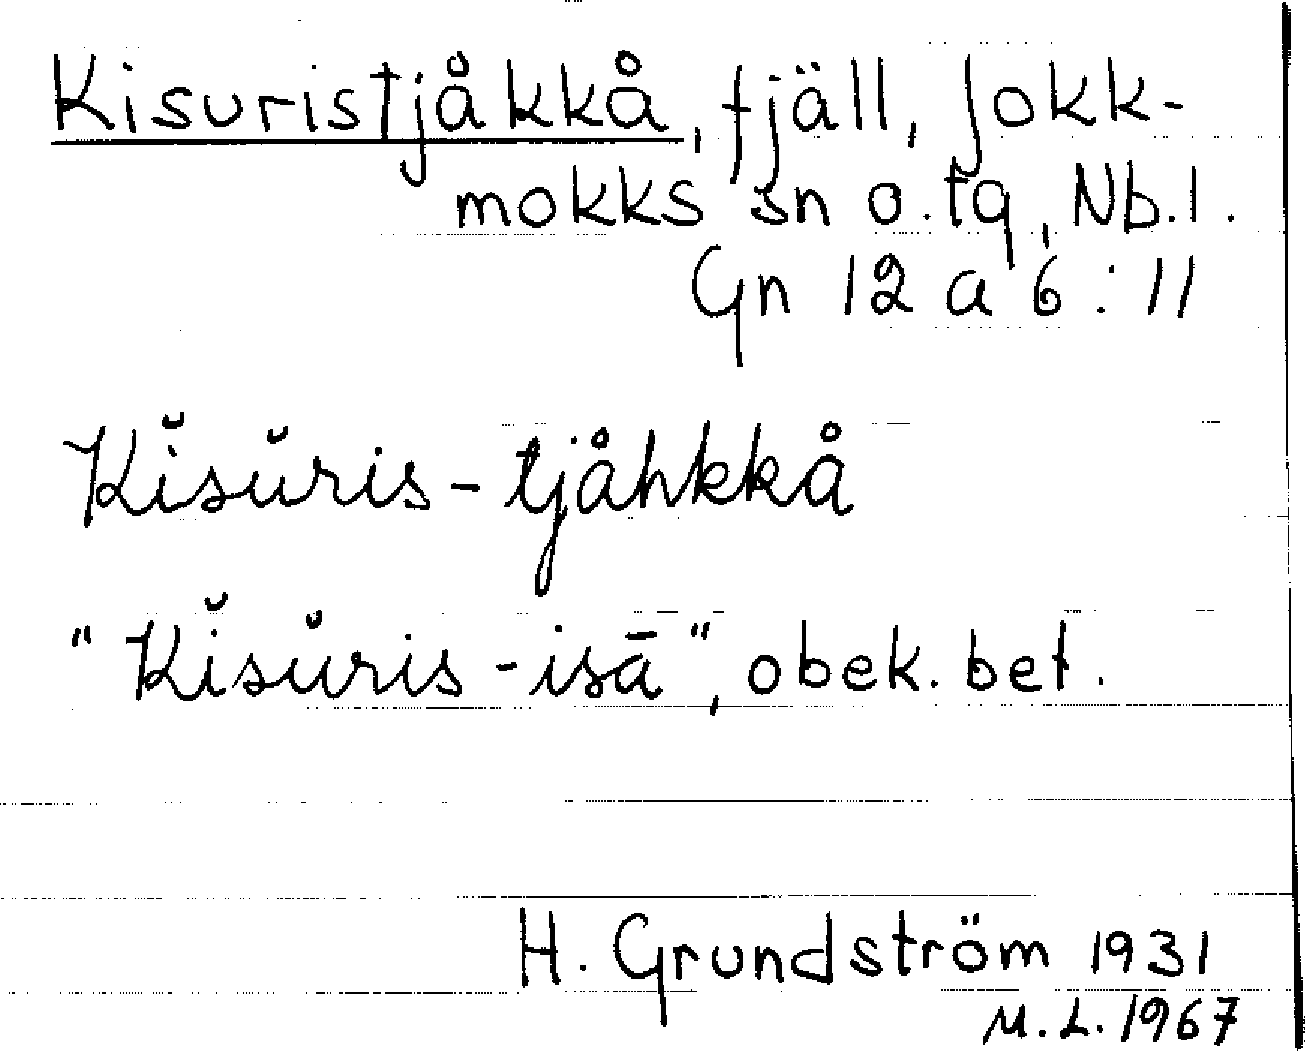 Kisuristjåkkå, fjäll, Jokk-
mokks sn o. tg, Nb. l.
Gn 12 a 6 : 11
Kĭsŭris-tjåhkkå
"Kĭsŭris-isā", obek. bet.
H. Grundström 1931
M. L. 1967